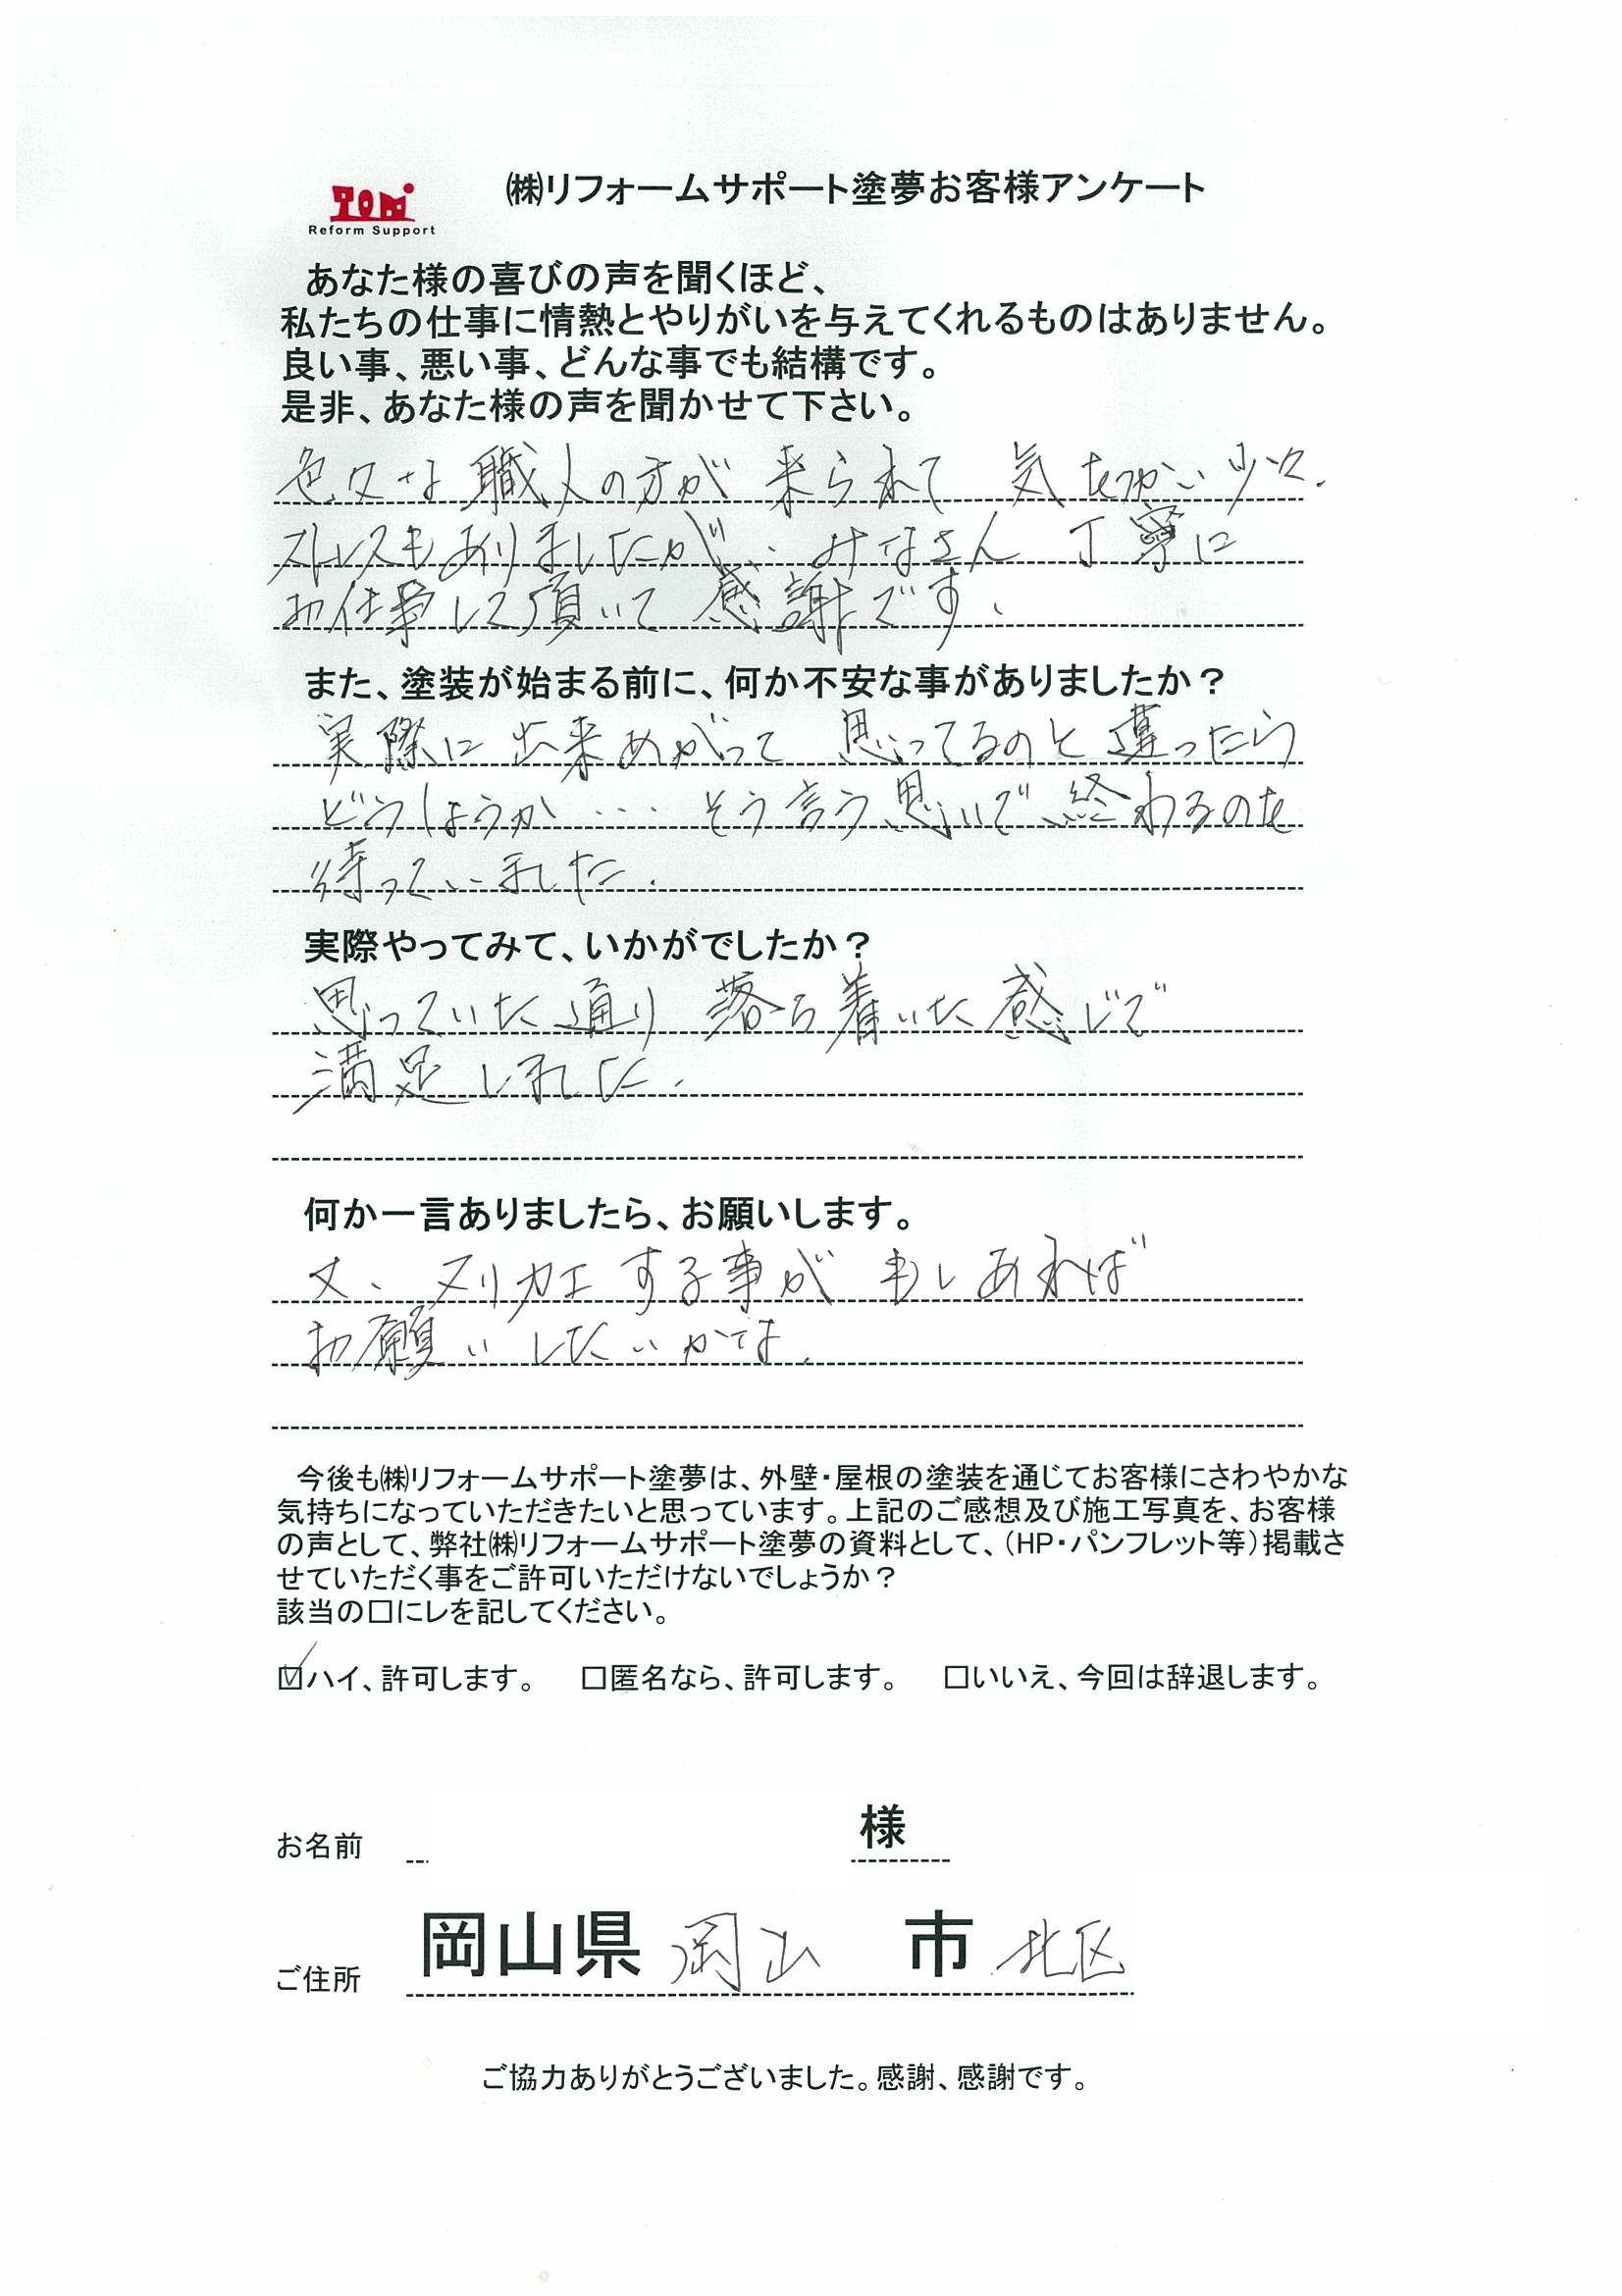 TOM
Reform Support
㈱リフォームサポート塗夢お客様アンケート
あなた様の喜びの声を聞くほど、
私たちの仕事に情熱とやりがいを与えてくれるものはありません。
良い事、悪い事、どんな事でも結構です。
是非、あなた様の声を聞かせて下さい。
色々な職人の方が 来られて 気をつかい少々.
ストレスもありましたが、、みなさん 丁寧に
お仕事して頂いて 感謝です、
また、塗装が始まる前に、何か不安な事がありましたか？
実際に出来あがって 思ってるのと違ったら
どうしようか・・・そう言う思いで 終わるのを
待っていました.
実際やってみて、いかがでしたか？
思っていた通り 落ち着いた感じで
満足しました.
何か一言ありましたら、お願いします。
又、ヌリカエする事が もしあれば
お願いしたいかな.
今後も㈱リフォームサポート塗夢は、外壁・屋根の塗装を通じてお客様にさわやかな
気持ちになっていただきたいと思っています。上記のご感想及び施工写真を、お客様
の声として、弊社㈱リフォームサポート塗夢の資料として、（HP・パンフレット等）掲載さ
せていただく事をご許可いただけないでしょうか？
該当の□にレを記してください。
☑ハイ、許可します。 □匿名なら、許可します。 □いいえ、今回は辞退します。
お名前 様
ご住所 岡山県 岡山 市 北区
ご協力ありがとうございました。感謝、感謝です。